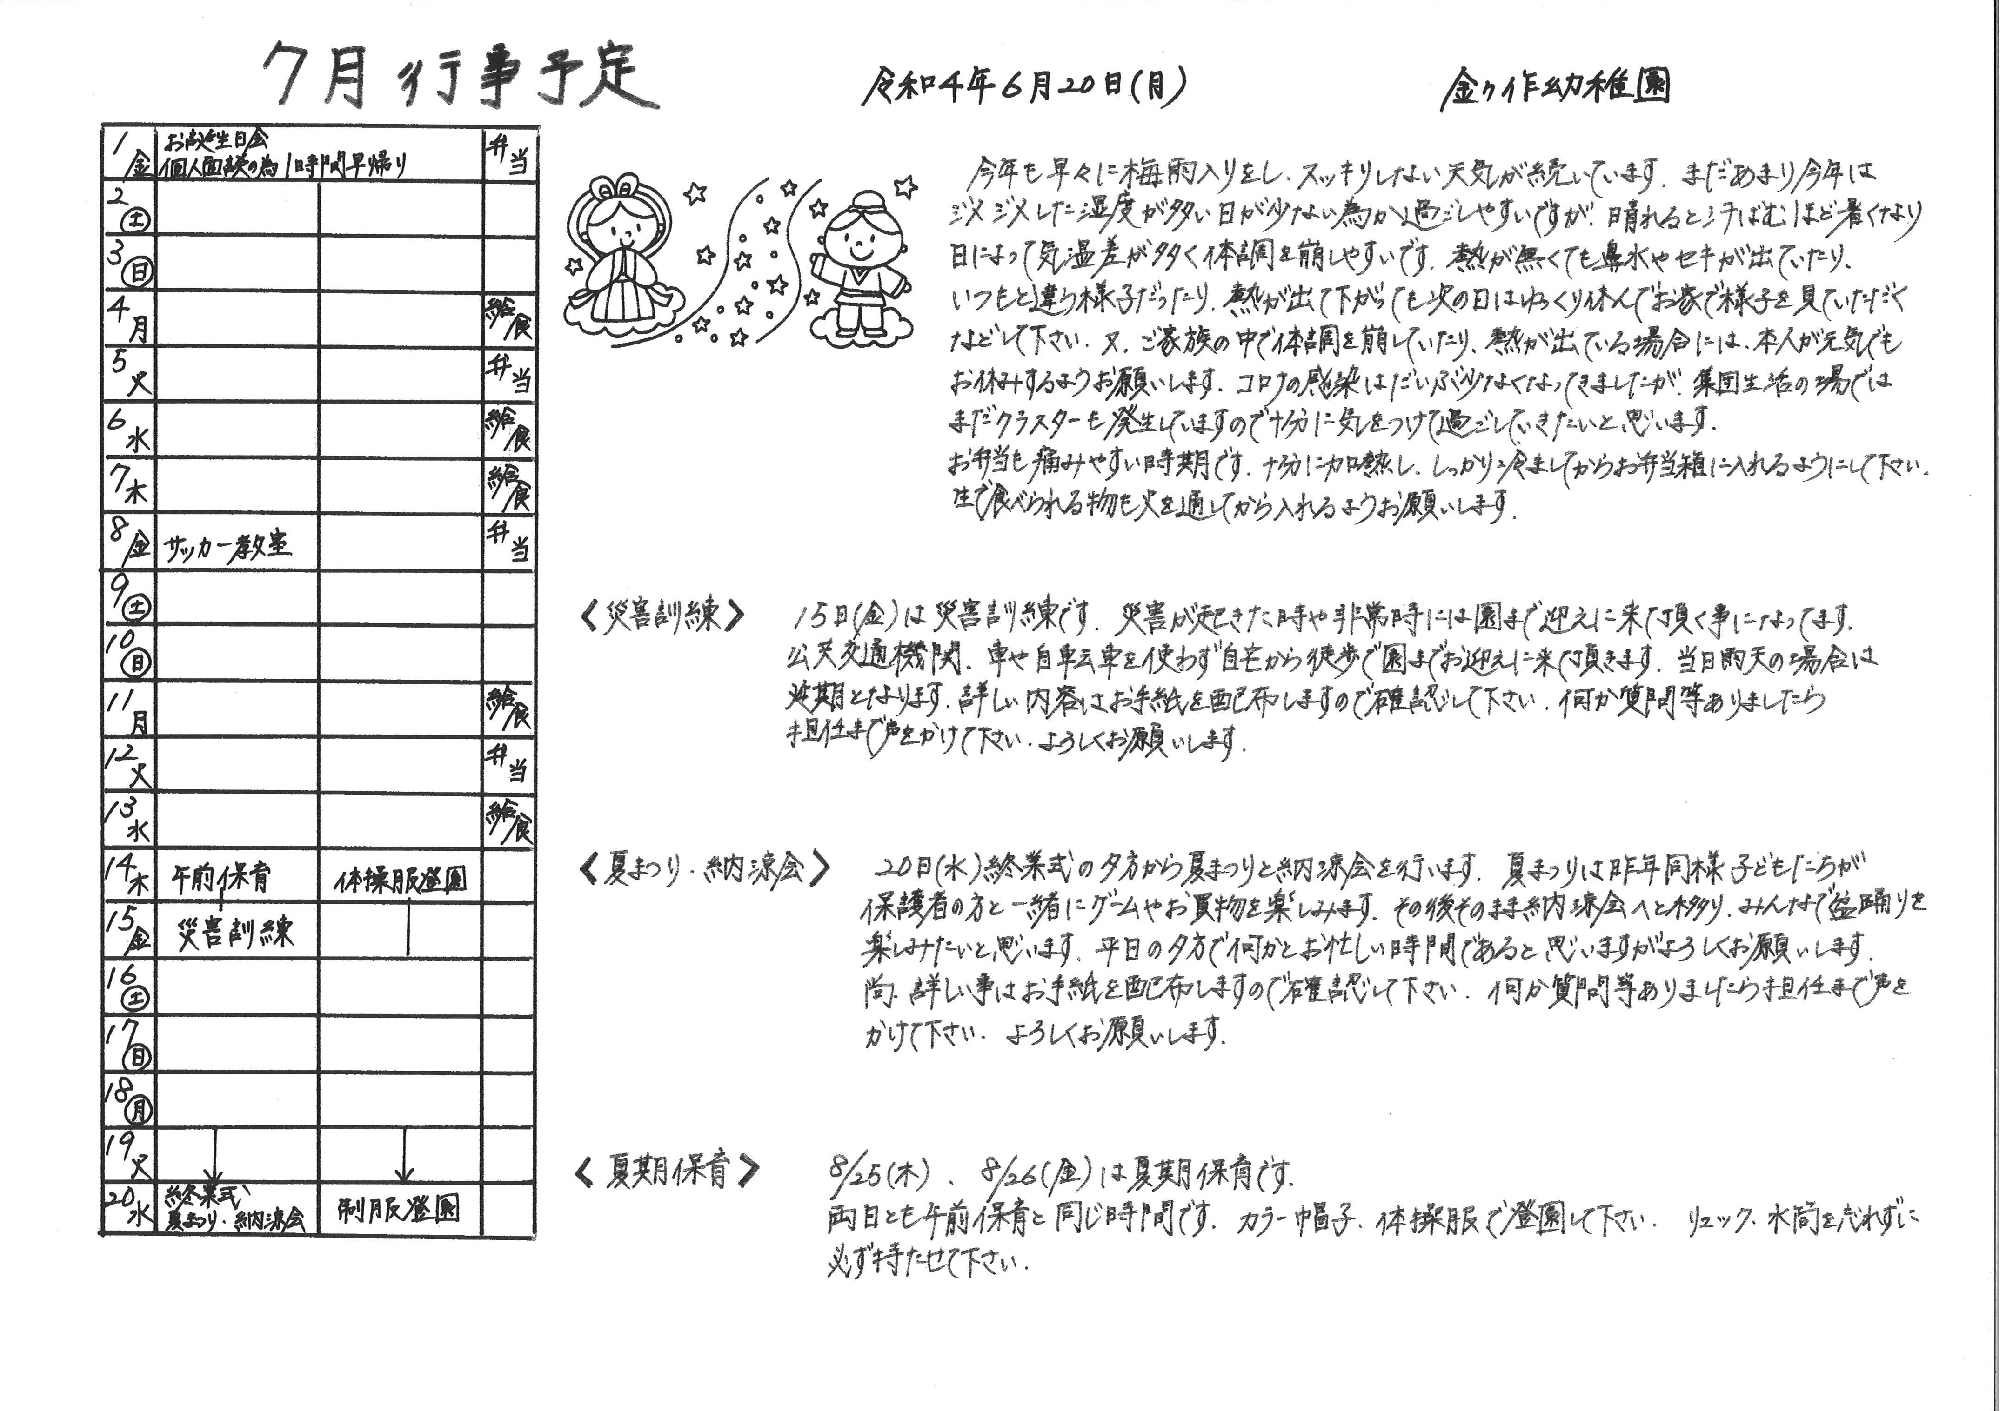 7月行事予定
令和4年6月20日(月)
金ヶ作幼稚園
1/金 お誕生日会 弁当
個人面談の為1時間早帰り
2 土
3 日
4/月 給食
5/火 弁当
6/水 給食
7/木 給食
8/金 サッカー教室 弁当
9 土
10 日
11/月 給食
12/火 弁当
13/水 給食
14/木 午前保育 体操服登園
15/金 災害訓練
16 土
17 日
18 月
19/火
20/水 終業式 制服登園
夏まつり・納涼会
今年も早々に梅雨入りをし、スッキリしない天気が続いています。まだあまり今年は
ジメジメした湿度が多い日が少ない為か過ごしやすいですが、晴れると汗ばむほど暑くなり
日によって気温差が多く体調を崩しやすいです。熱が無くても鼻水やセキが出ていたり、
いつもと違う様子だったり、熱が出て下がっても次の日はゆっくり休んでお家で様子を見ていただく
などして下さい。又、ご家族の中で体調を崩していたり、熱が出ている場合には、本人が元気でも
お休みするようお願いします。コロナの感染はだいぶ少なくなってきましたが、集団生活の場では
まだクラスターも発生していますので十分に気をつけて過ごしていきたいと思います。
お弁当も痛みやすい時期です。十分に加熱し、しっかり冷ましてからお弁当箱に入れるようにして下さい。
生で食べられる物も火を通してから入れるようお願いします。
〈災害訓練〉 15日(金)は災害訓練です。災害が起きた時や非常時には園まで迎えに来て頂く事になってます。
公共交通機関、車や自転車を使わず自宅から徒歩で園までお迎えに来て頂きます。当日雨天の場合は
延期となります。詳しい内容はお手紙を配布しますので確認して下さい。何か質問等ありましたら
担任まで声をかけて下さい。よろしくお願いします。
〈夏まつり・納涼会〉 20日(水)終業式の夕方から夏まつりと納涼会を行います。夏まつりは昨年同様子どもたちが
保護者の方と一緒にゲームやお買物を楽しみます。その後そのまま納涼会へと移り、みんなで盆踊りを
楽しみたいと思います。平日の夕方で何かとお忙しい時間であると思いますがよろしくお願いします。
尚、詳しい事はお手紙を配布しますので確認して下さい。何か質問等ありましたら担任まで声を
かけて下さい。よろしくお願いします。
〈夏期保育〉 8/25(木)、8/26(金)は夏期保育です。
両日とも午前保育と同じ時間です。カラー帽子、体操服で登園して下さい。リュック、水筒を忘れずに
必ず持たせて下さい。